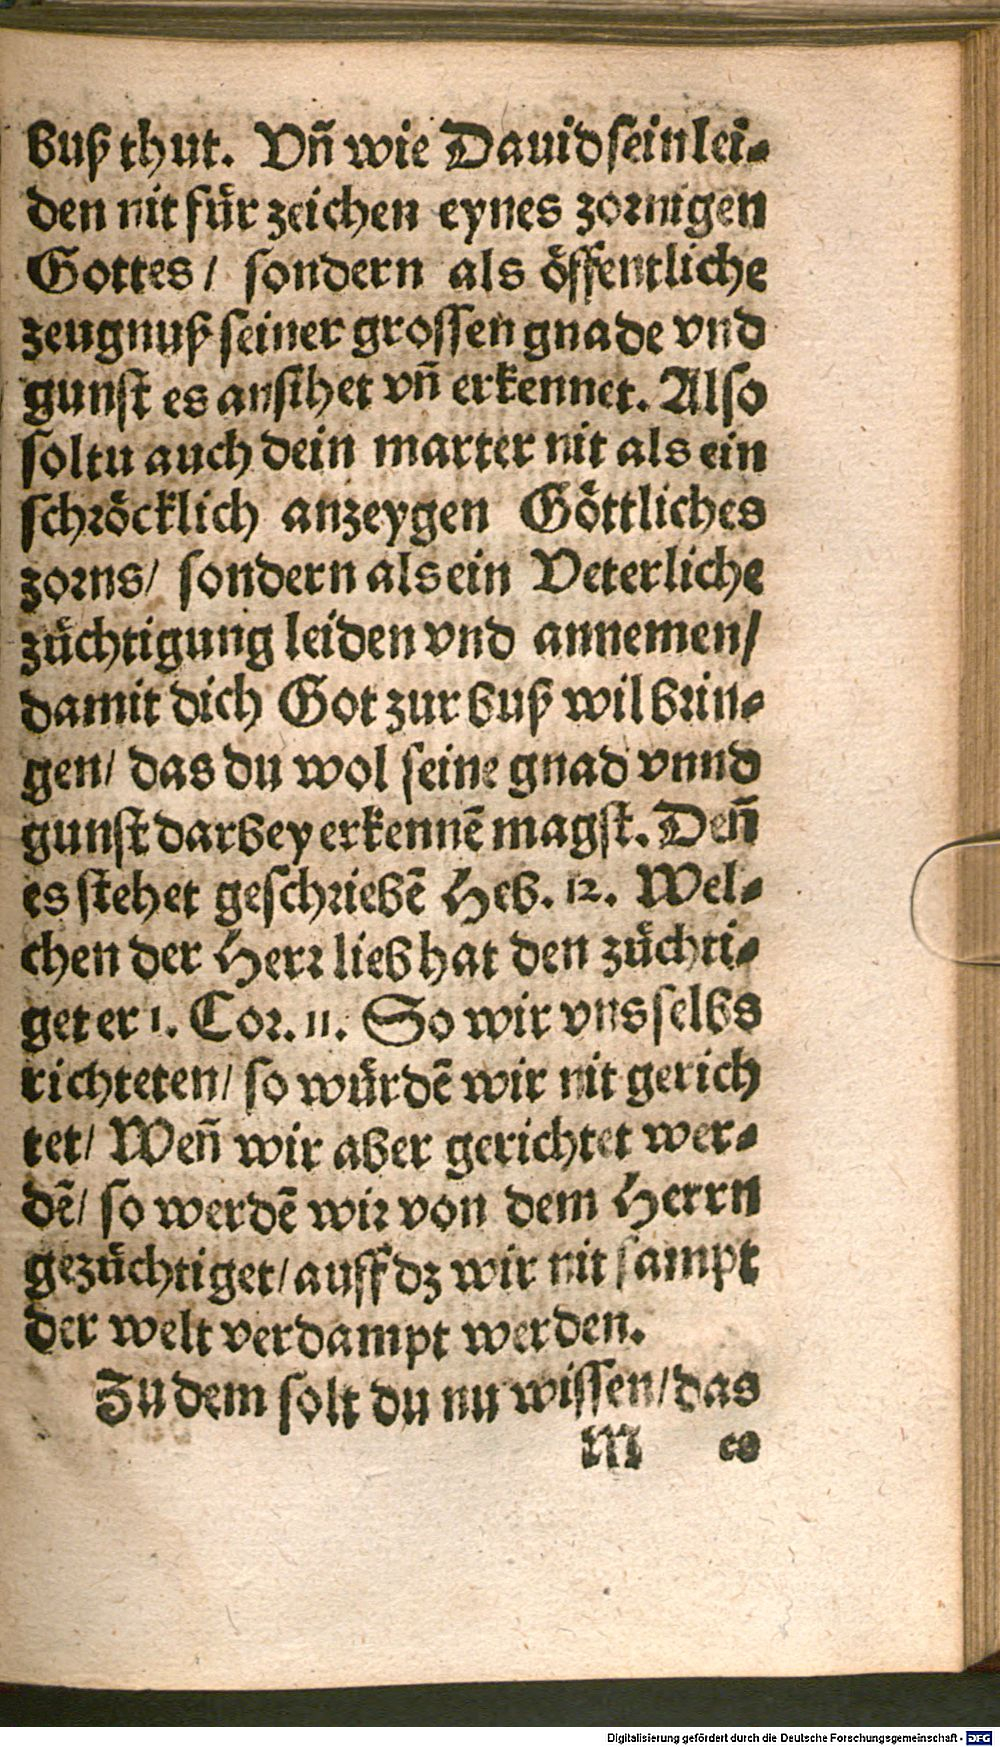 buß thut. Vn̄ wie Dauid sein lei-
den nit für zeichen eynes zornigen
Gottes / sondern als öffentliche
zeugnuß seiner grossen gnade vnd
gunst es ansihet vn̄ erkennet. Also
soltu auch dein marter nit als ein
schröcklich anzeygen Göttliches
zorns / sondern als ein Veterliche
züchtigung leiden vnd annemen /
damit dich Got zur buß wil brin-
gen / das du wol seine gnad vnnd
gunst darbey erkennē magst. Den̄
es stehet geschriebē Heb. 12. Wel-
chen der Herr lieb hat den züchti-
get er 1. Cor. 11. So wir vns selbs
richteten / so würdē wir nit gerich
tet / Wen̄ wir aber gerichtet wer-
dē / so werdē wir von dem Herrn
gezüchtiget / auff dz wir nit sampt
der welt verdampt werden.
Zu dem solt du nu wissen / das
M es
Digitalisierung gefördert durch die Deutsche Forschungsgemeinschaft - DFG